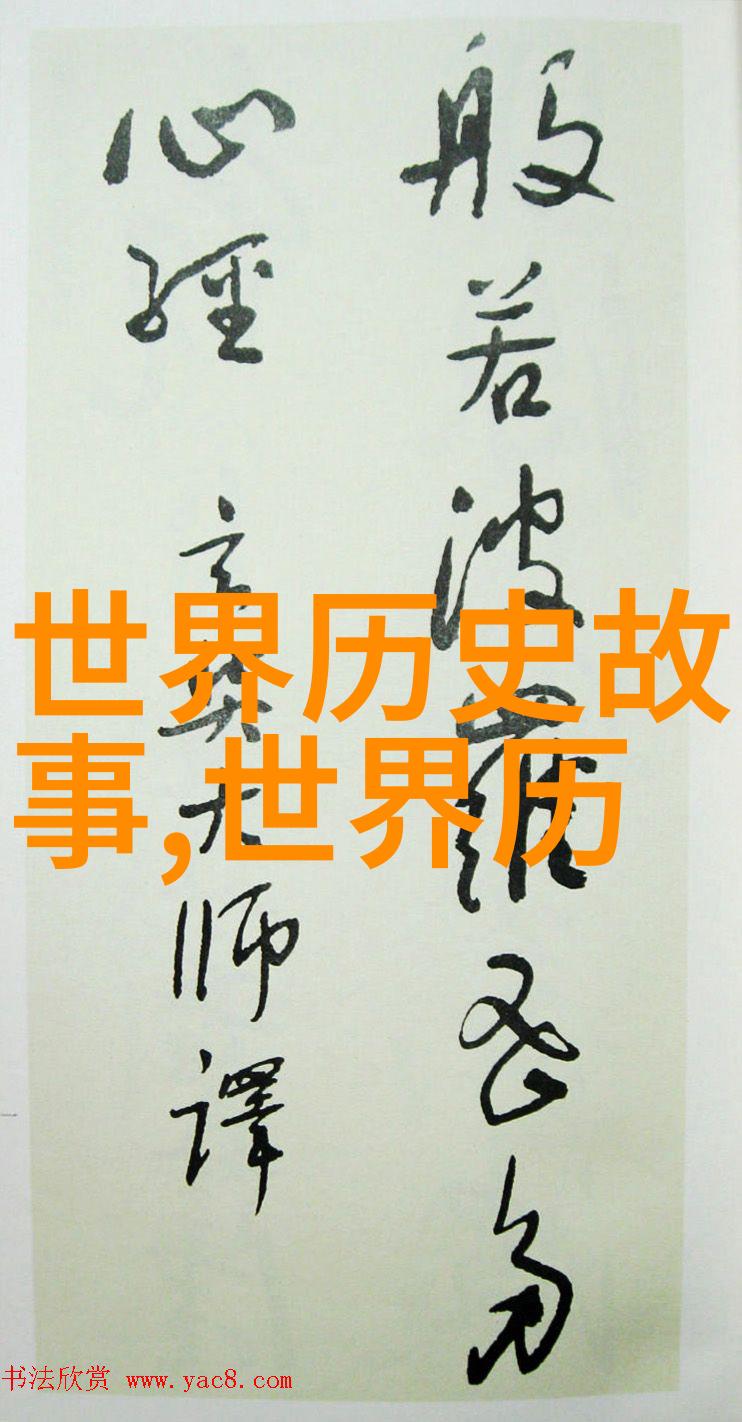 般若波羅蜜多
心經 玄奘大師譯
世界历史故
事,世界历
书法欣赏 www.yac8.com